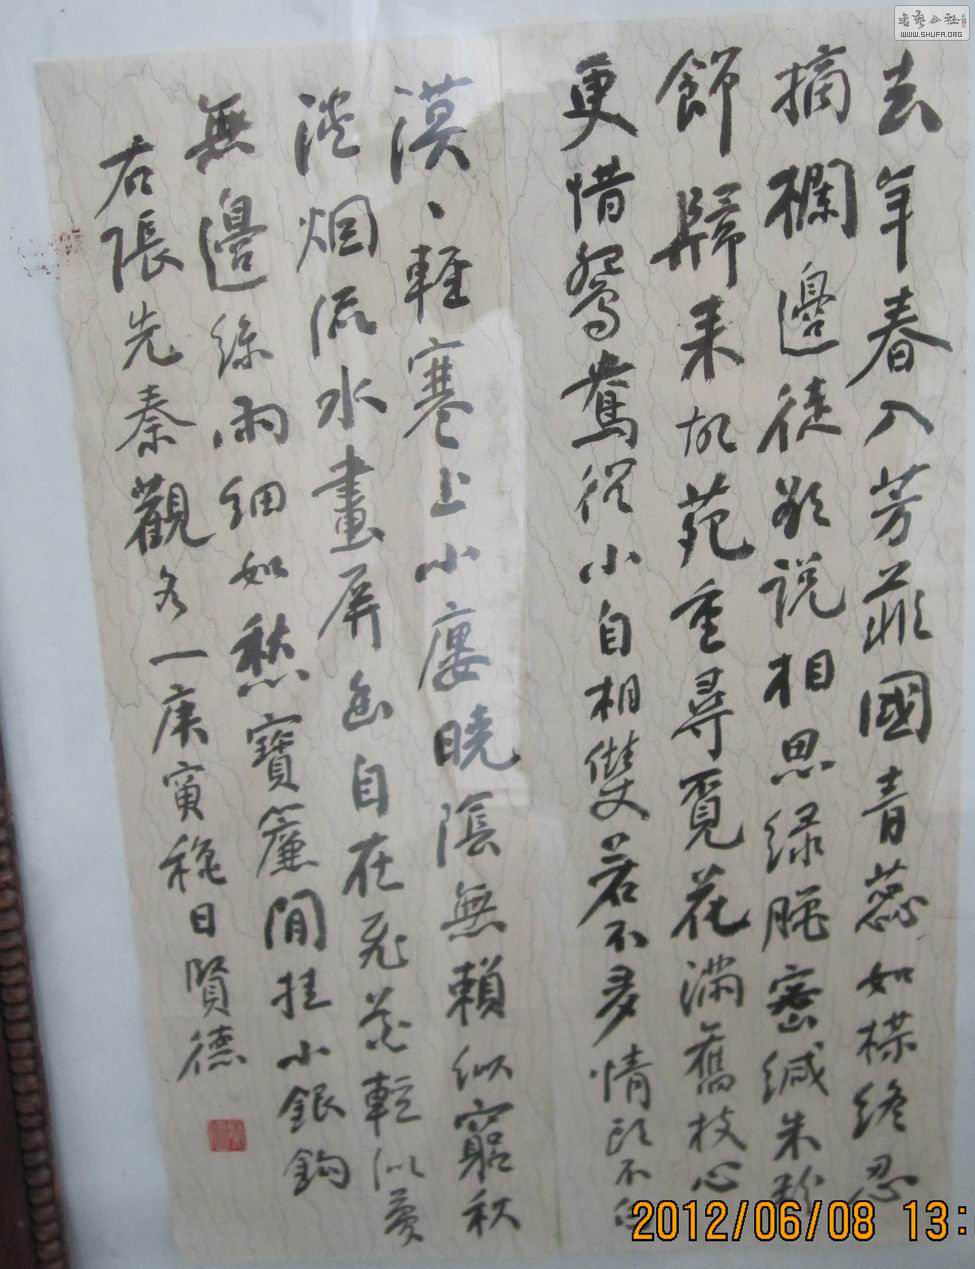 去年春入芳菲國青蕊如梅終忍
摘欄邊徒欲說相思綠臘密緘朱粉
飾歸来故苑重尋覓花滿舊枝心
更惜鴛鴦從小自相雙若不多情頭不白
漠、輕寒上小廔曉陰無賴似窮秋
淡烟流水畫屏幽自在飛花輕似夢
無邊絲雨細如愁寶簾閒挂小銀鉤
右張先秦觀各一庚寅秋日賢德
書藝公社
WWW.SHUFA.ORG
2012/06/08 13: